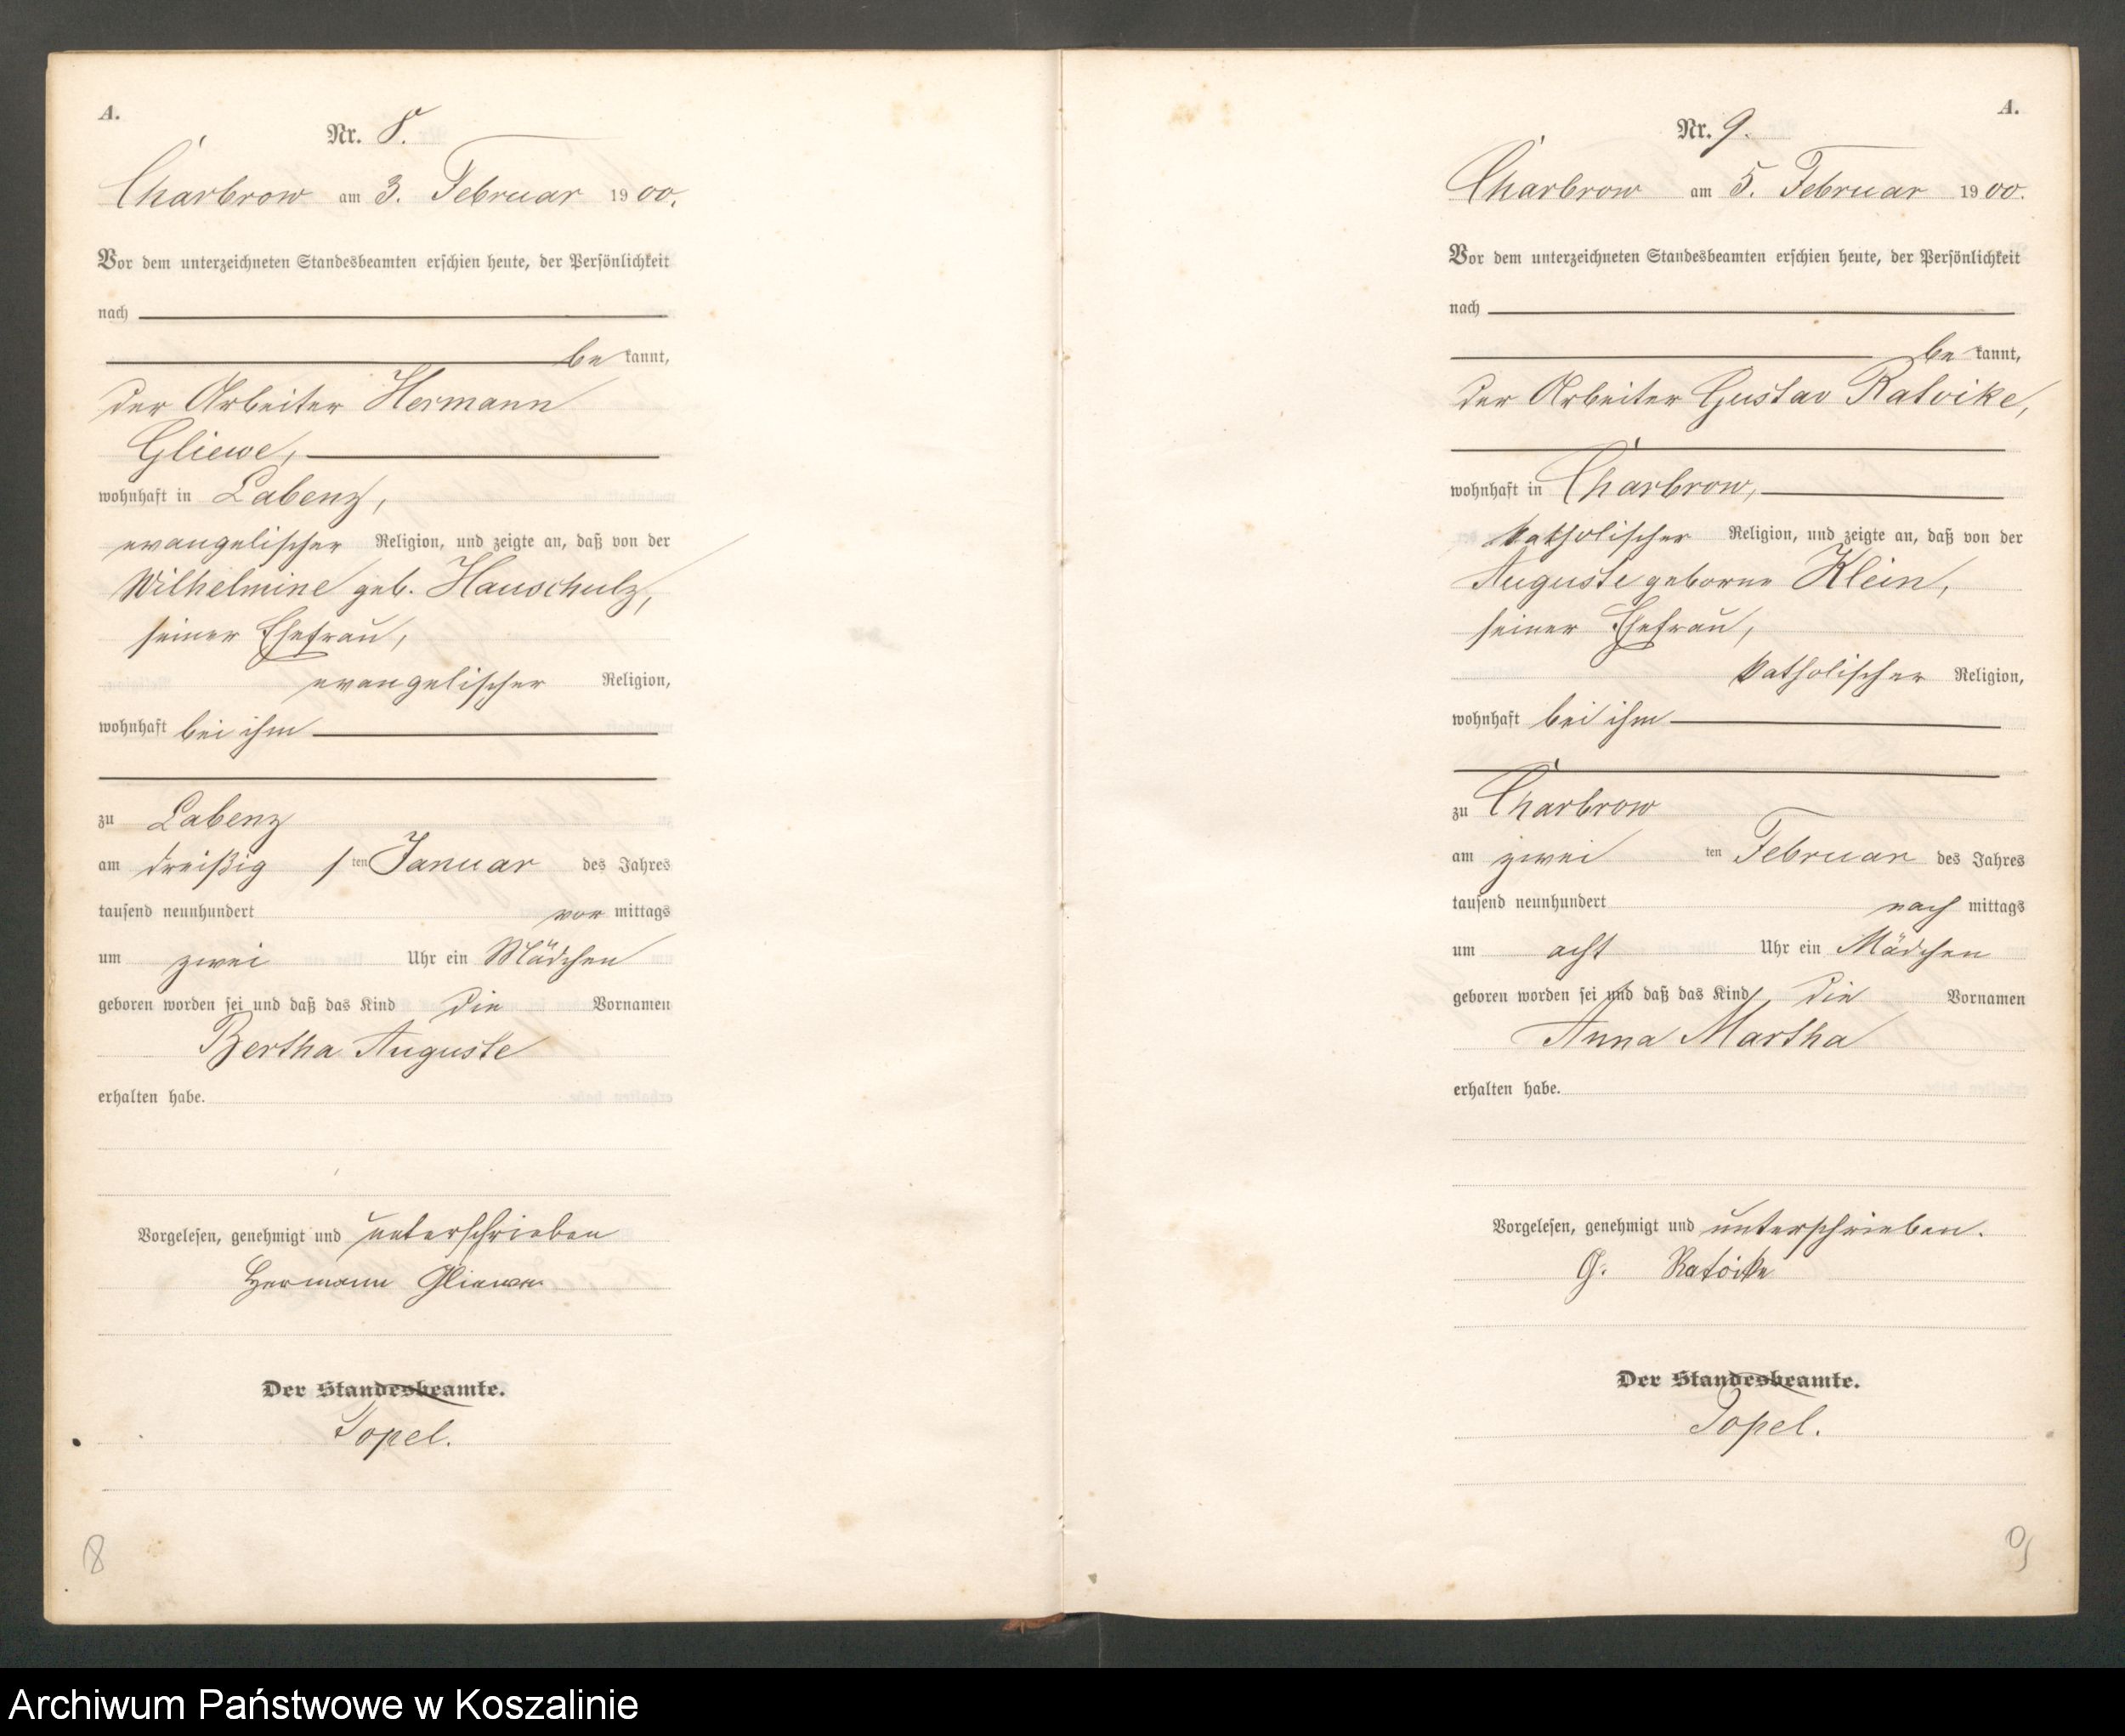 A.
Nr. 8.
Charbrow am 3. Februar 1900.
Vor dem unterzeichneten Standesbeamten erschien heute, der Persönlichkeit
nach
be kannt,
der Arbeiter Hermann
Gliewe,
wohnhaft in Labenz,
evangelischer Religion, und zeigte an, daß von der
Wilhelmine geb. Hauschulz,
seiner Ehefrau,
evangelischer Religion,
wohnhaft bei ihm
zu Labenz
am dreißig sten Januar des Jahres
tausend neunhundert vor mittags
um zwei Uhr ein Mädchen
geboren worden sei und daß das Kind die Vornamen
Bertha Auguste
erhalten habe.
Vorgelesen, genehmigt und unterschrieben
Hermann Gliewe
Der Standesbeamte.
Topel.
8
A.
Nr. 9.
Charbrow am 5. Februar 1900.
Vor dem unterzeichneten Standesbeamten erschien heute, der Persönlichkeit
nach
be kannt,
der Arbeiter Gustav Ratoike,
wohnhaft in Charbrow,
katholischer Religion, und zeigte an, daß von der
Auguste geborne Klein,
seiner Ehefrau,
katholischer Religion,
wohnhaft bei ihm
zu Charbrow
am zwei ten Februar des Jahres
tausend neunhundert nach mittags
um acht Uhr ein Mädchen
geboren worden sei und daß das Kind die Vornamen
Anna Martha
erhalten habe.
Vorgelesen, genehmigt und unterschrieben.
G. Ratoike
Der Standesbeamte.
Topel.
9
Archiwum Państwowe w Koszalinie